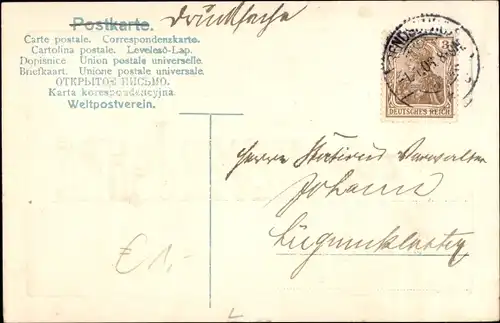 Postkarte. Drucksache
Carte postale. Correspondenzkarte.
Cartolina postale. Levelező-Lap.
Dopisnice. Union postale universelle.
Briefkaart. Unione postale universale.
ОТКРЫТОЕ ПИСЬМО.
Karta korespondencyjna.
Weltpostverein.
3
DEUTSCHES REICH
Herrn Stations Verwalter
Johann
Lügumkloster
€ 1,-